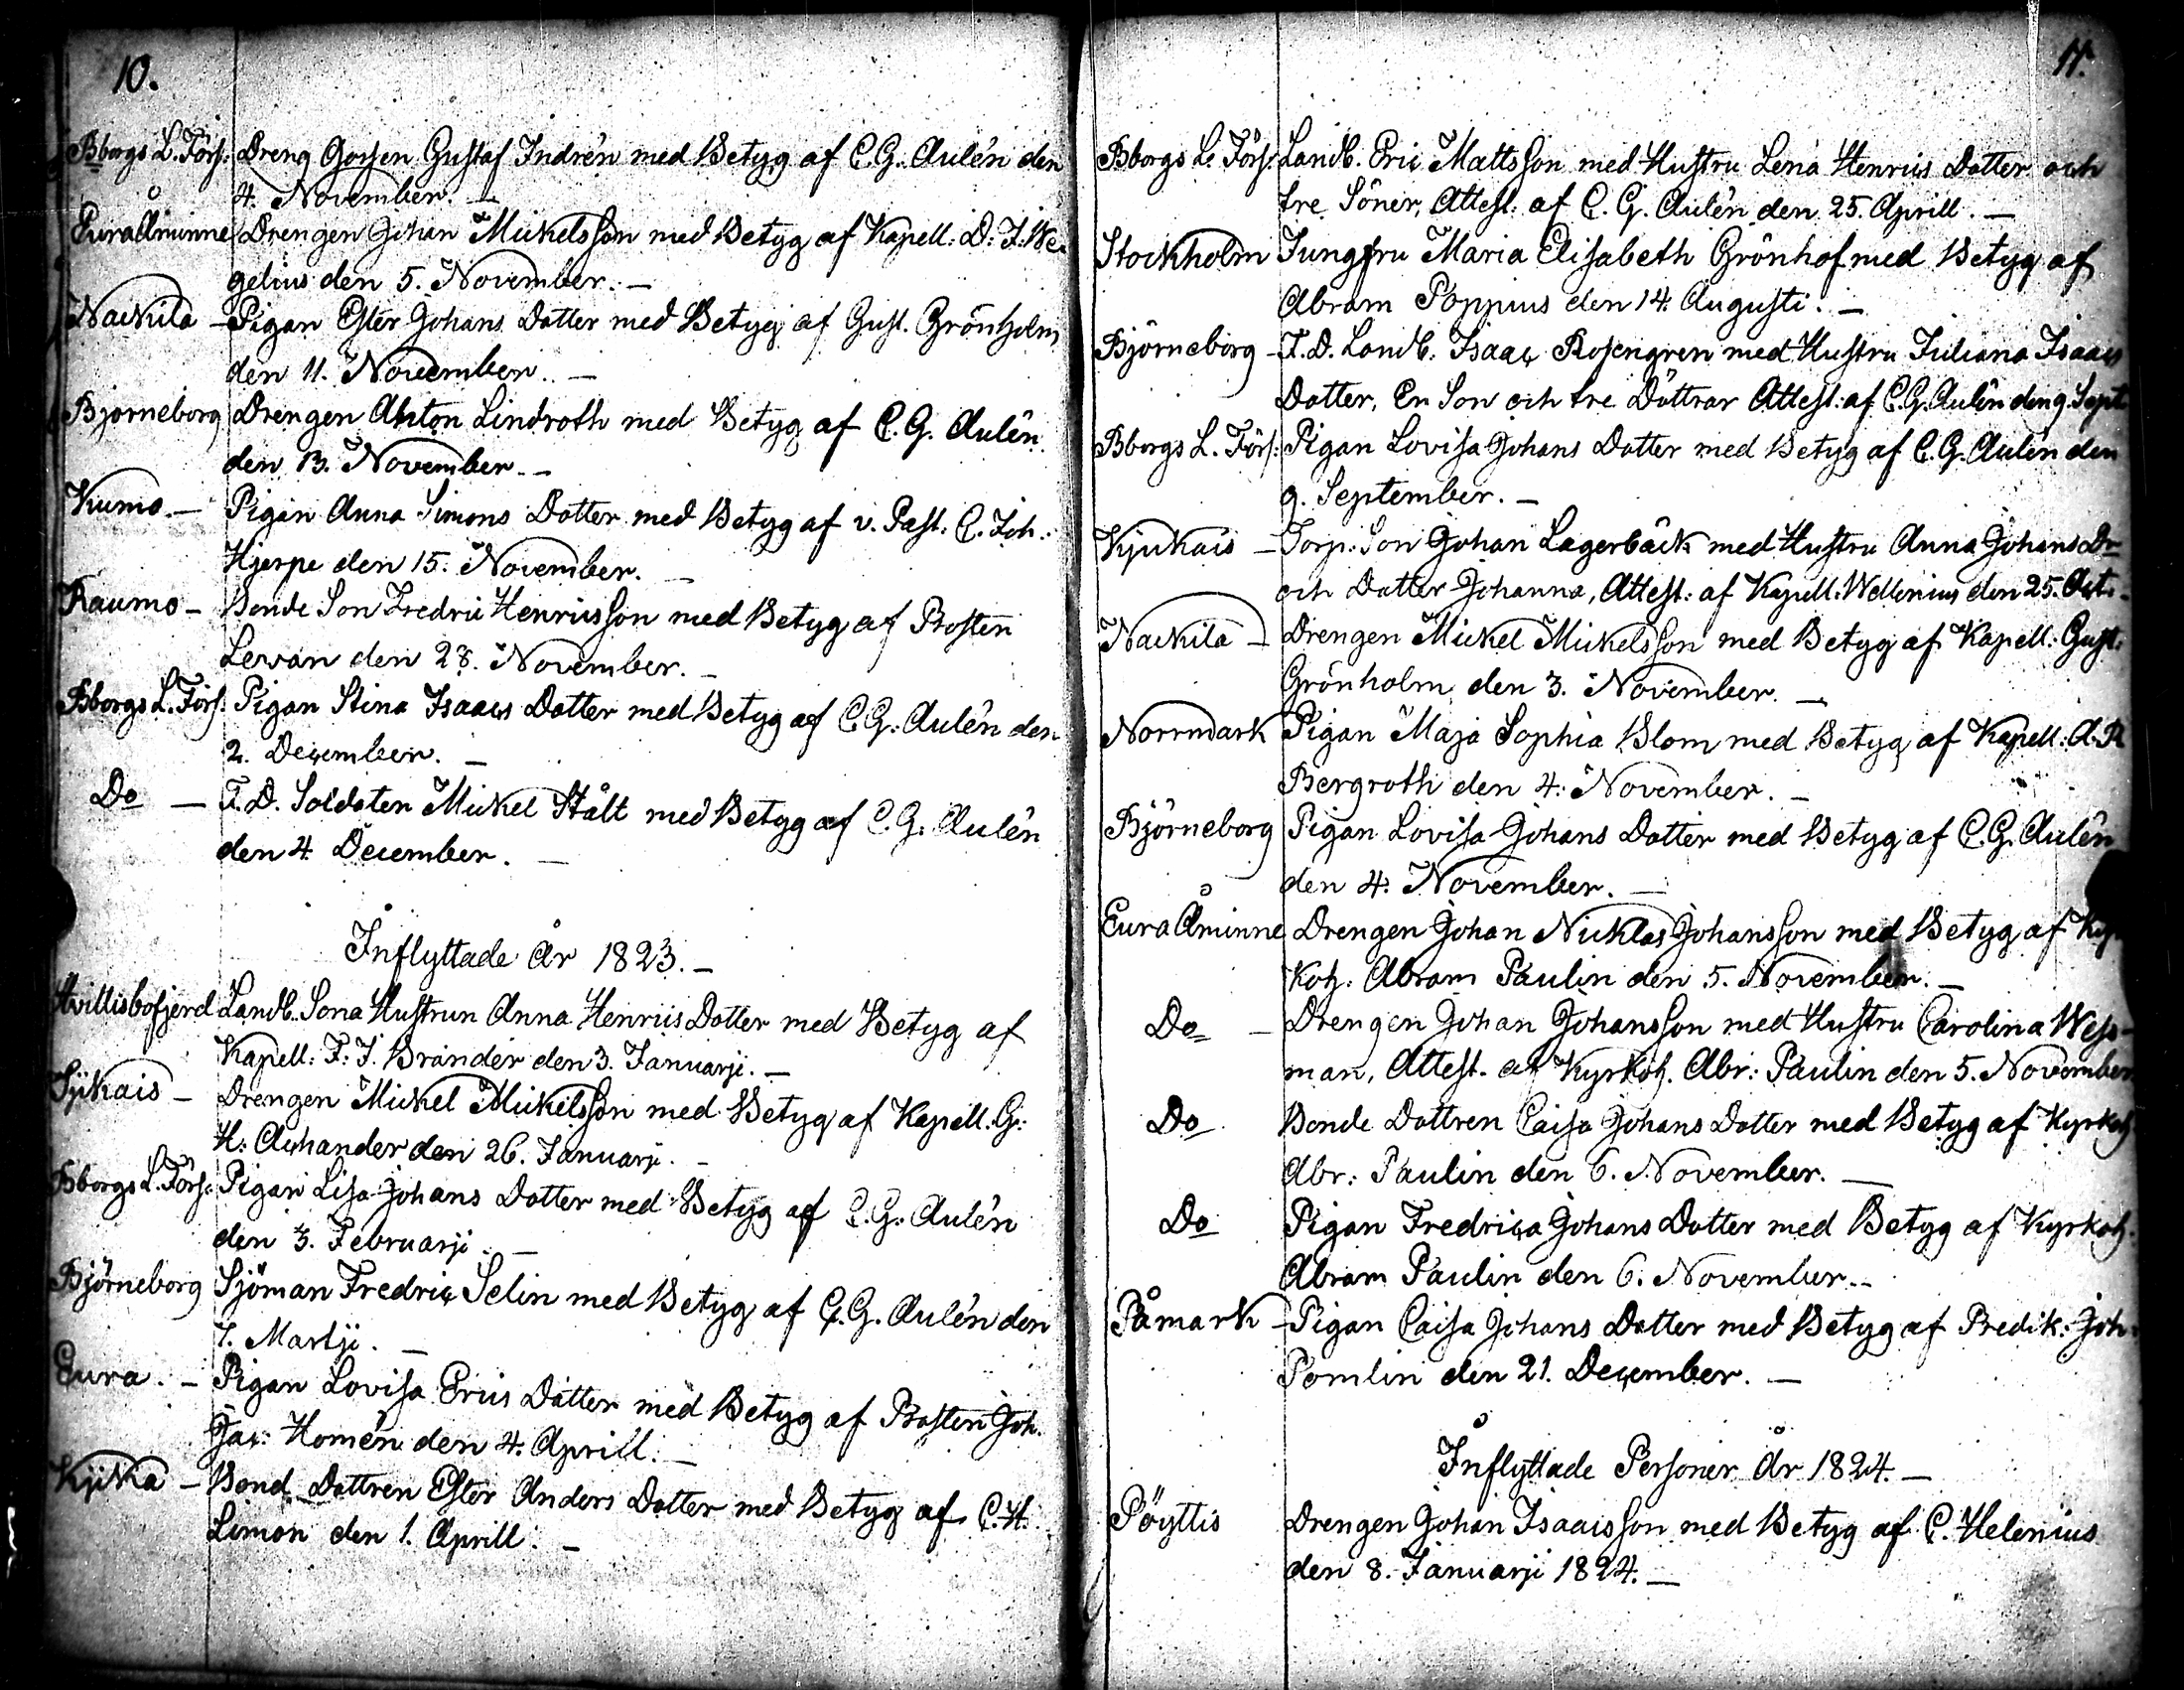 10.
Bborgs L. Förs: Dreng Gossen Gustaf Indrén med Betyg af C. G. Aulén den
4. November. —
Eura Åminne Drengen Johan Mickelsson med Betyg af Kapell: D: F. We-
gelius den 5. November. —
Nackila — Pigan Ester Johans Dotter med Betyg af Gust. Grönholm
den 11. November. —
Bjorneborg Drengen Anton Lindroth med Betyg af C. G. Aulén
den 13. November. —
Kumo. — Pigan Anna Simons Dotter med Betyg af v. Past. C. Joh.
Hjerpe den 15. November. —
Raumo — Bonde Son Fredric Henricsson med Betyg af Prosten
Levan den 28. November. —
Bborgs L. Förs: Pigan Stina Isaacs Dotter med Betyg af C. G: Aulén den
2. December. —
Do — F. D. Soldaten Mickel Stålt med Betyg af C. G. Aulén
den 4. December. —
Inflyttade År 1823. —
Hvittisbofjerd Landb. Sona Hustrun Anna Henrics Dotter med Betyg af
Kapell: F: J. Brander den 3. Januarji. —
Sjikais — Drengen Mickel Mickelsson med Betyg af Kapell. G:
H: Achander den 26. Januarji. —
Bborgs L. Förs: Pigan Lisa Johans Dotter med Betyg af C. G. Aulén
den 3. Februarji. —
Björneborg Sjöman Fredric Selin med Betyg af C. G. Aulén den
7. Martji. —
Eura. — Pigan Lovisa Erics Dotter med Betyg af Prosten Joh.
Jac: Homén den 4. Aprill. —
Kjika — Bond Dottren Ester Anders Dotter med Betyg af C. H.
Limon den 1. Aprill. —
11.
Bborgs L. Förs: Landb. Eric Mattsson med Hustru Lena Henrics Dotter och
tre Söner, Attest: af C. G. Aulén den 25. Aprill. —
Stockholm Jungfru Maria Elisabeth Grönhof med Betyg af
Abram Poppius den 14. Augusti. —
Björneborg — F. D. Landb. Isaac Rosengren med Hustru Juliana Isaacs
Dotter, En Son och tre Döttrar Attest: af C. G. Aulén den 9. Sept.
Bborgs L. Förs: Pigan Lovisa Johans Dotter med Betyg af C. G. Aulén den
9. September. —
Kjukais — Torp. Son Johan Lagerbäck med Hustru Anna Johans Dr
och Dotter Johanna, Attest: af Kapell: Wellenius den 25. Oct.
Nackila — Drengen Mickel Mickelsson med Betyg af Kapell: Gust.
Grönholm den 3. November. —
Norrmark Pigan Maja Sophia Blom med Betyg af Kapell: A. R
Bergroth den 4. November. —
Björneborg Pigan Lovisa Johans Dotter med Betyg af C. G. Aulén
den 4. November. —
Eura Åminne Drengen Johan Nicklas Johansson med Betyg af Kyr
koh: Abram Paulin den 5. November. —
Do — Drengen Johan Johansson med Hustru Carolina Wess-
man, Attest. af Kyrkoh. Abr: Paulin den 5. November
Do Bonde Dottren Caisa Johans Dotter med Betyg af Kyrkoh
Abr: Paulin den 6. November. —
Do Pigan Fredrica Johans Dotter med Betyg af Kyrkoh.
Abram Paulin den 6. November. —
Påmark — Pigan Caisa Johans Dotter med Betyg af Predik: Joh:
Pomlin den 21. December. —
Inflyttade Personer År 1824. —
Pöyttis Drengen Johan Isaacsson med Betyg af C. Helenius
den 8. Januarji 1824. —